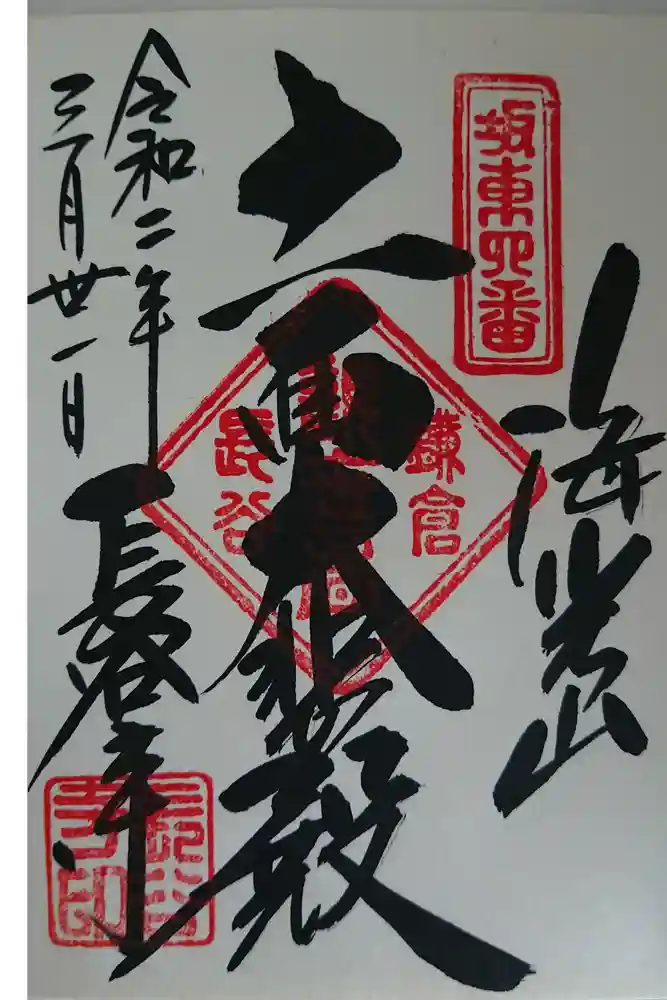 坂東四番
海光山
十一面大悲殿
鎌倉
長谷
令和二年
三月丗一日
長谷寺
長谷寺印